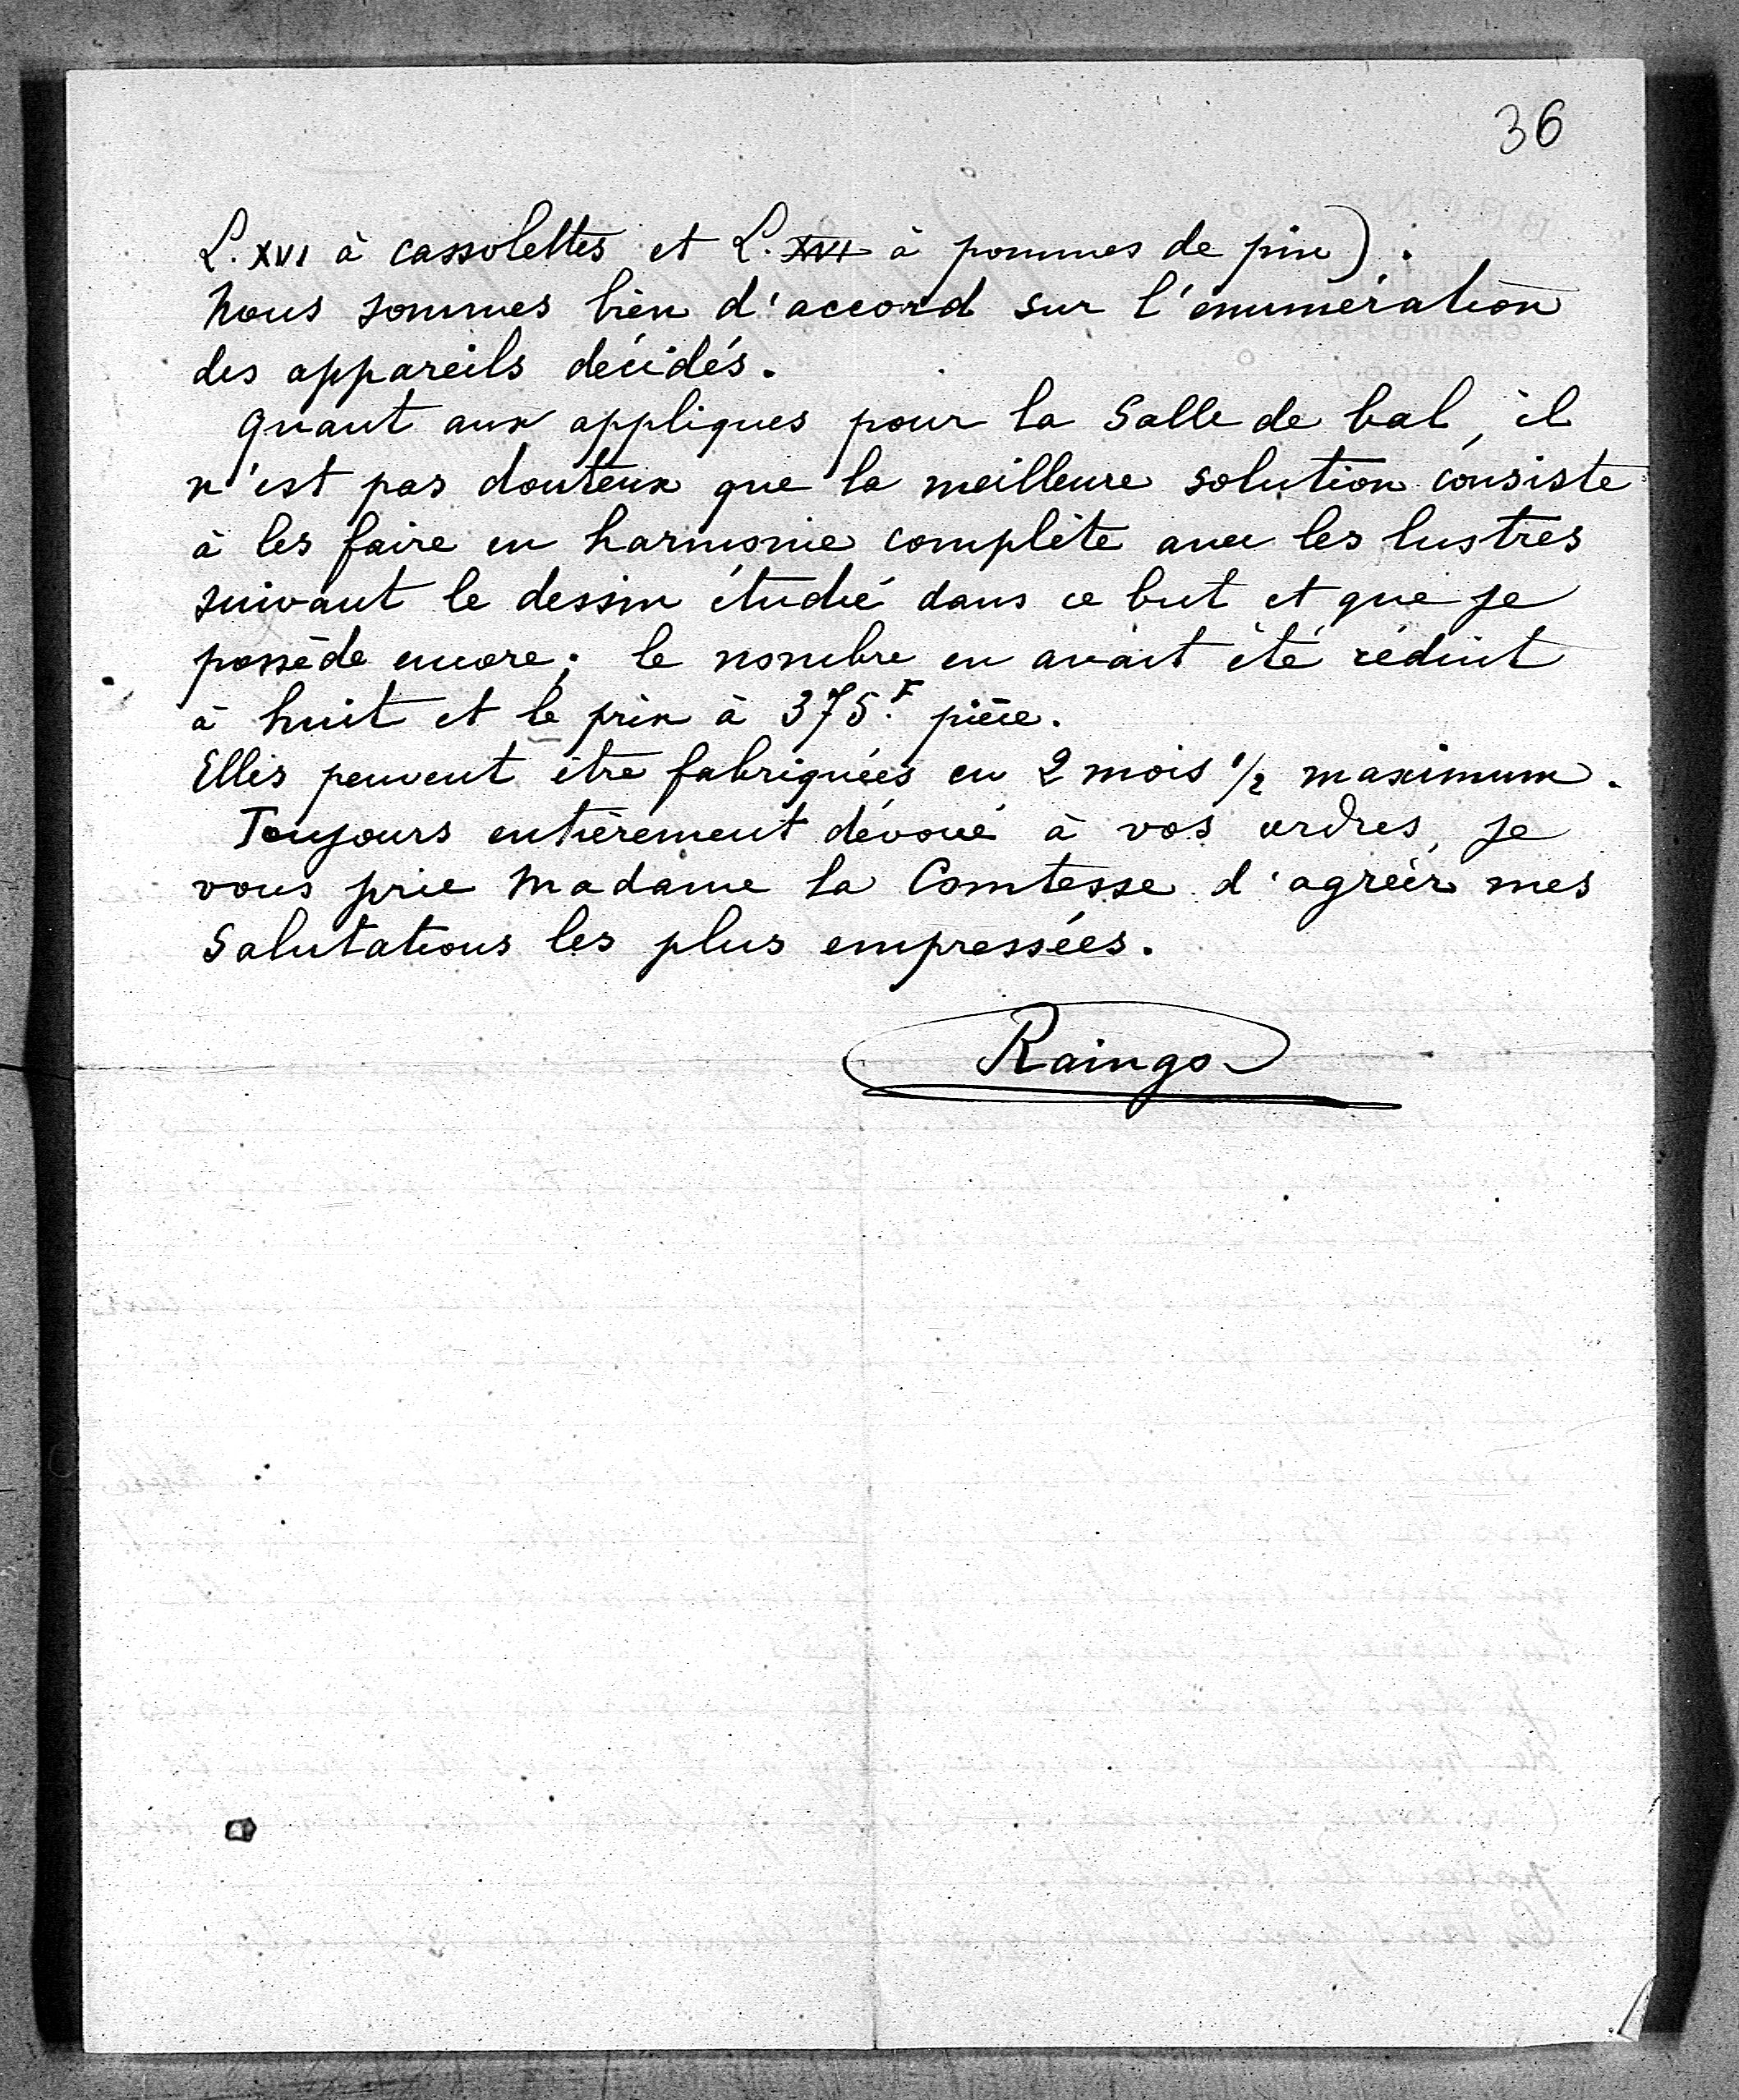 36
L. XVI à cassolettes et L. XVI à pommes de pin).
Nous sommes bien d'accord sur l'énumération
des appareils décidés.
Quant aux appliques pour la Salle de bal, il
n'est pas douteux que la meilleure solution consiste
à les faire en harmonie complète avec les lustres
suivant le dessin étudié dans ce but et que je
possède encore; le nombre en avait été réduit
à huit et le prix à 375.F pièce.
Elles peuvent être fabriquées en 2 mois 1/2 maximum.
Toujours entièrement dévoué à vos ordres, je
vous prie Madame la Comtesse d'agréer mes
Salutations les plus empressées.
Raingo